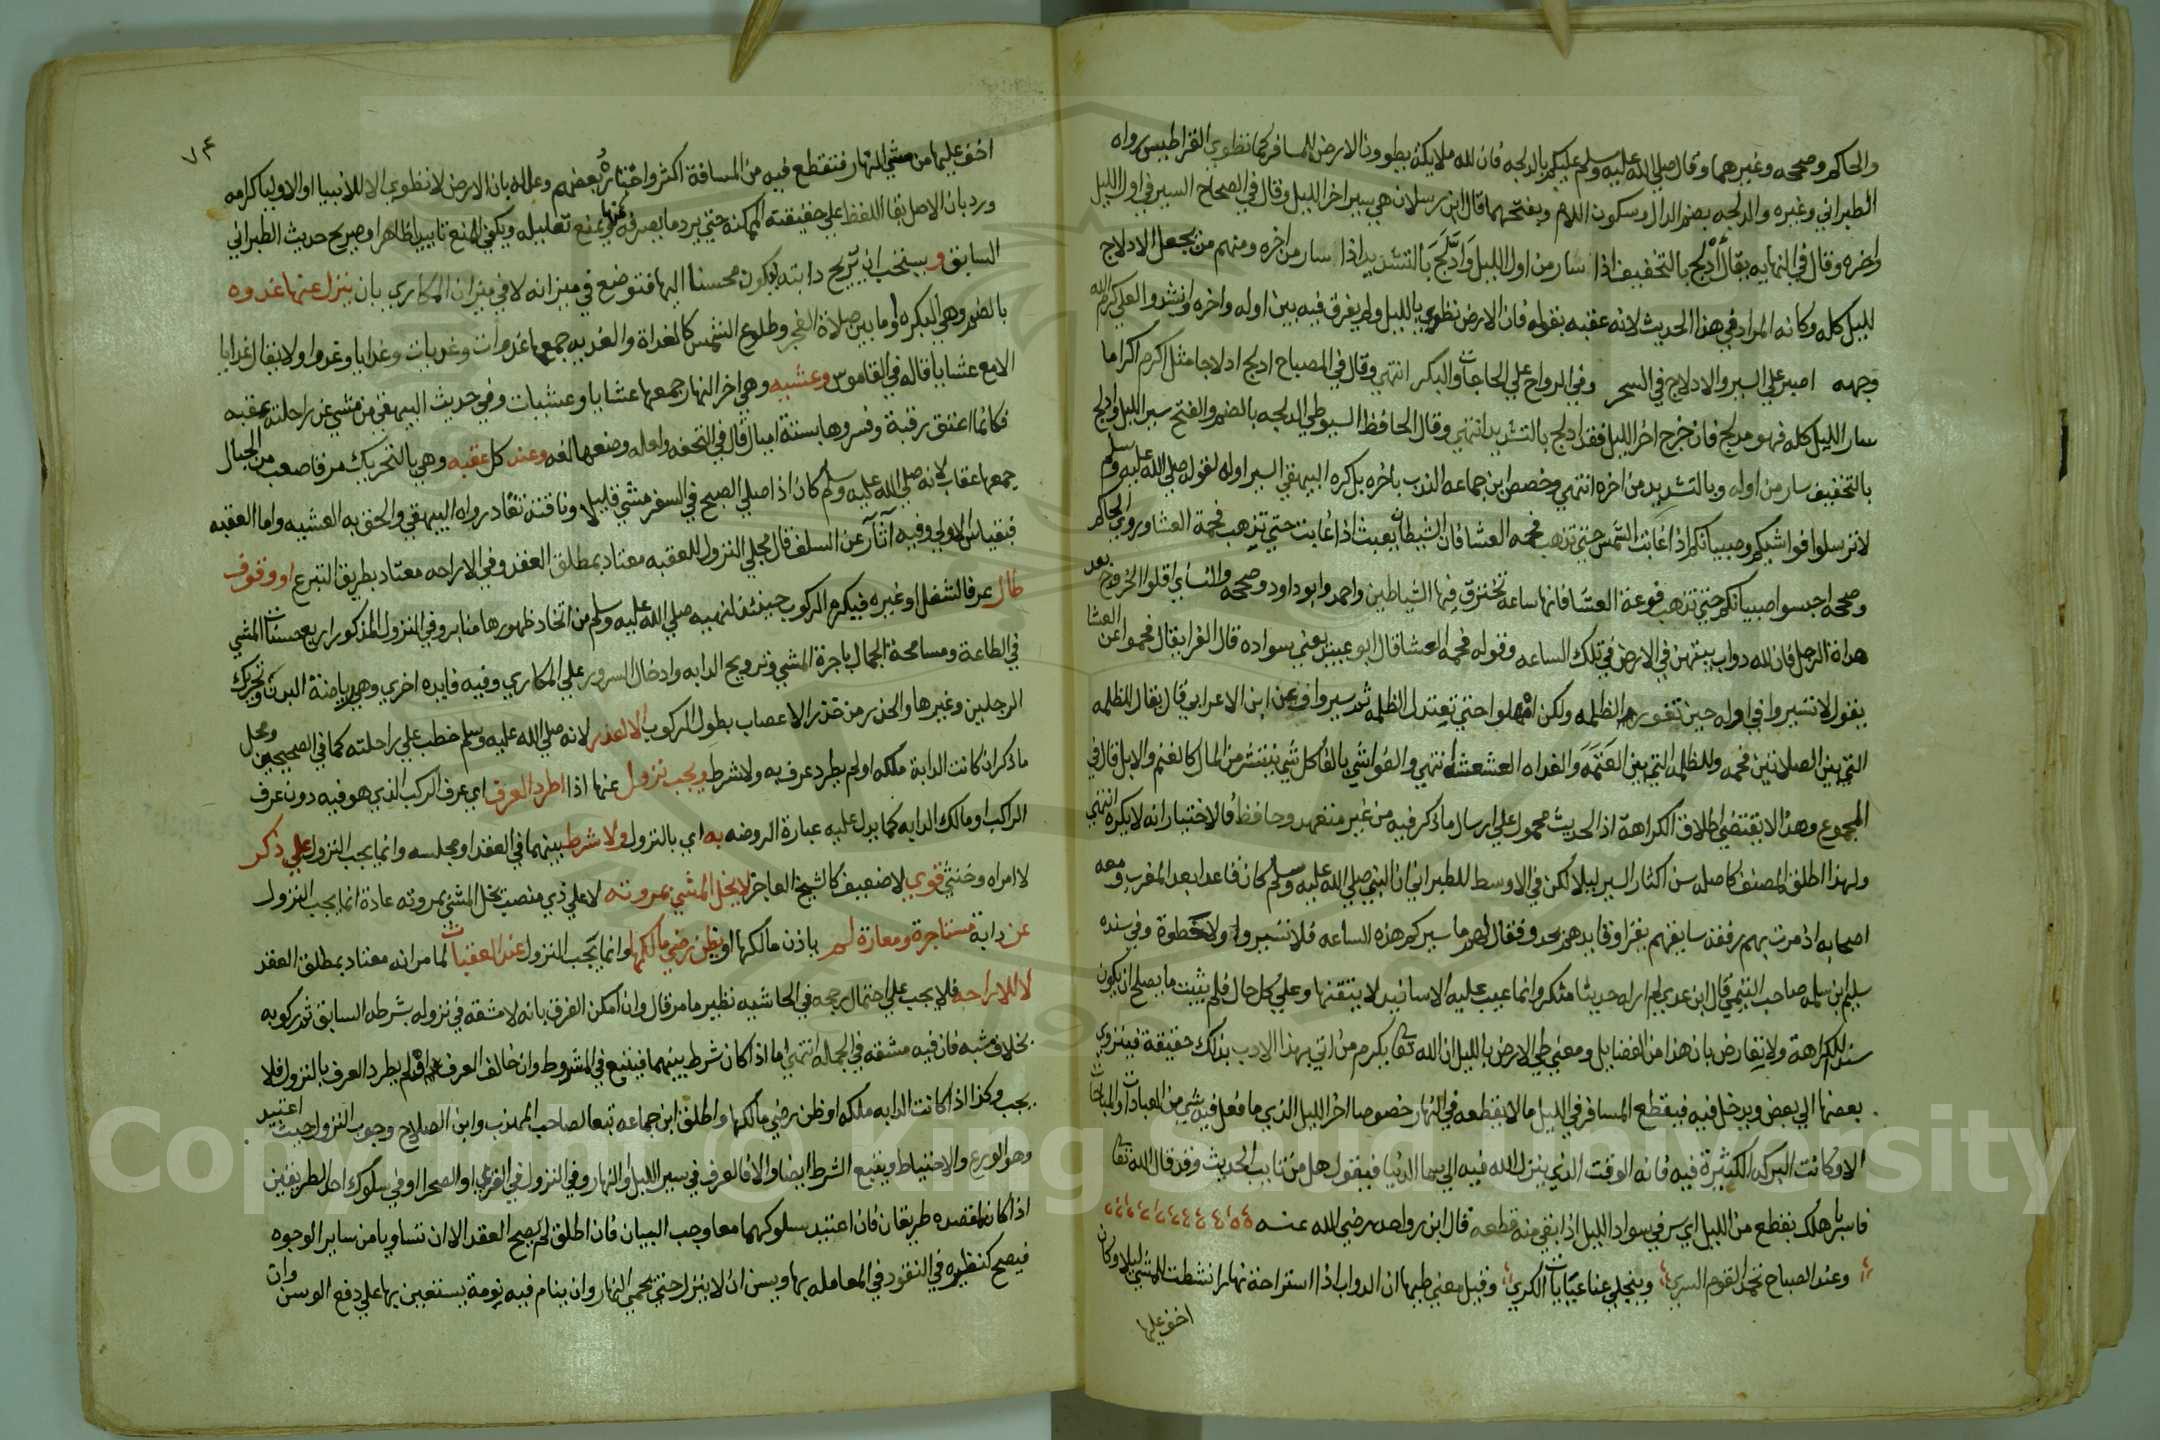 والحاكم وصححه وغيرهما وقال صلي الله عليه وسلم عليكم بالدلجه فان لله ملايكة يطوون الارض للمسافر كما تطوي القراطيس رواه
الطبراني وغيره والدلجه بضم الدال وسكون اللام وبفتحهما قال ابن رسلان هي سير اخر الليل وقال في الصحاح السير في اول الليل
واخره وقال في النهايه يقال أدلج بالتخفيف اذا سار من اول الليل وادَّلج بالتشديد اذا سار من اخره ومنهم من يجعل الادلاج
لليل كله وكانه المراد في هذا الحديث لانه عقبه بقوله فان الارض تطوي بالليل ولم يفرق فيه بين اوله واخره وانشدوا لعلي كرم الله
وجهه اصبر علي السير والادلاج في السحر وفي الرواح علي الحاجات والبكر انتهي وقال في المصباح ادلج ادلاجا مثل اكرم اكراما
سار الليل كله فهو مدلج فان خرج اخر الليل فقد ادلج بالتشديد انتهي وقال الحافظ السيوطي الدلجه بالضم والفتح سير الليل وادلج
بالتخفيف سار من اوله وبالتشديد من اخره انتهي وخصص ابن جماعه الندب باخره بل كره البيهقي السير اوله لقوله صلي الله عليه وسلم
لا ترسلوا فواشيكم وصبيانكم اذا غابت الشمس حتي تذهب فحمه العشا فان الشيطان يعبث اذا غابت حتي تذهب فحمة العشا وروي الحاكم
وصححه احبسوا صبيانكم حتي تذهب فوعة العشا فانها ساعة تخترق فيها الشياطين واحمد وابو داود وصححه والنساي اقلوا الخروج بعد
هداة الرجل فان لله دواب يبثهن في الارض في تلك الساعه وقوله فحمه العشا قال ابو عبيد يعني سواده قال الفرا يقال فحموا عن العشا
يقول لا تسيروا في اوله حين تفور الظلمه ولكن امهلوا حتي تعتدل الظلمه ثم سيروا وعن ابن الاعرابي قال يقال للظلمه
التي بين الصلاتين فحمه وللظلمه التي بين العتمه والغداه العسعسه انتهي والفواشي بالفا كل شي ينتشر من المال كالغنم والابل قال في
المجموع وهذا لا يقتضي اطلاق الكراهة اذ الحديث محمول علي ارسال ما ذكر فيه من غير متعهد وحافظ فالاختيار انه لا يكره انتهي
ولهذا اطلق المصنف كاصله سن اكثار السير ليلا لكن في الاوسط للطبراني ان النبي صلي الله عليه وسلم كان قاعدا بعد المغرب ومعه
اصحابه اذ مرت بهم رفقه سايقهم يقرا وقايدهم يحدو فقال لهم ما سيركم هذه الساعه فلا تسيروا ولا خطوة وفي سنده
سليم ابن سلمه صاحب التيمي قال ابن عدي لم ار له حديثا منكرا وانما عيب عليه الاسانيد لا يتقنها وعلي كل حال فلم يثبت ما يصلح ان يكون
سند للكراهة ولا يعارض بان هذا من الفضايل ومعني طي الارض بالليل ان الله تعا يكرم من اتي بهذا الادب بذلك حقيقة فينزوي
بعضها الي بعض ويدخل فيه فيقطع المسافر في الليل ما لا يقطعه في النهار خصوصا اخر الليل الذي ما فعل فيه شي من العبادات والمباحات
الا وكانت البركه الكثيرة فيه فانه الوقت الذي ينزل الله فيه الي سما الدنيا فيقول هل من تايب الحديث وقد قال الله تعا
فاسر باهلك بقطع من الليل اي سر في سواد الليل اذا بقي منه قطعه قال ابن رواحه رضي الله عنه
وعند الصباح تحمد القوم السري وينجلي عنا غيابات الكري وقيل معني طيها ان الدواب اذا استراحة نهارا نشطت للمشي ليلا وكان
اخف عليها
٧٤
اخف عليها من مشي النهار فتقطع فيه من المسافة اكثر واختاره بعضهم وعلله بان الارض لا تطوي الا للانبيا او الاوليا كرامه
ورد بان الاصل بقا اللفظ علي حقيقته الممكنه حتي يرد ما يصرفه عنها وبمنع تعليله ويكفي المنع تاييدا ظاهرا وصريح حديث الطبراني
السابق ويستحب ان يريح دابته ليكون محسنا اليها فتوضع في ميزانه لا في ميزان المكاري بان ينزل عنها غدوه
بالضم وهي البكره او ما بين صلاة الفجر وطلوع الشمس كالغداة والغديه جمعها غدوات وغديات وغدايا وغدو او لا يقال غدايا
الا مع عشايا قاله في القاموس وعشيه وهي اخر النهار جمعها عشايا وعشيات وفي حديث البيهقي من مشي عن راحلته عقبه
فكانما اعتق رقبة وفسروها بستة اميال قال في التحفه ولعله وضعها لغه وعند كل عقبه وهي بالتحريك مرقا صعب من الجبال
جمعها عقاب لانه صلي الله عليه وسلم كان اذا صلي الصبح في السفر مشي قليلا وناقته تقاد رواه البيهقي والحق به العشيه واما العقبه
فبقياس الاولي وفيه آثار عن السلف قال مجلي النزول للعقبه معتاد بمطلق العقد وفي الاراحه معتاد بطريق التبرع او وقوف
طال عرفا لشغل او غيره فيكره الركوب حينئذ لنهيه صلي الله عليه وسلم من اتخاذ ظهورها منابر وفي النزول المذكور اربع حسنات المشي
في الطاعة ومسامحة الجمال باجرة المشي وترويح الدابه وادخال السرور علي المكاري وفيه فايده اخري وهي رياضة البدن وتحريك
الرجلين وغيرها والحذر من خدر الاعصاب بطول الركوب الا لعذر لانه صلي الله عليه وسلم خطب علي راحلته كما في الصحيحين ومحل
ما ذكر ان كانت الدابة ملكه او لم يطرد عرف به ولا شرط ويجب نزول عنها اذا اطرد العرف اي عرف الركب الذي هو فيه دون عرف
الراكب او مالك الدابه كما يدل عليه عبارة الروضه به اي بالنزول ولا شرط بينهما في العقد او مجلسه وانما يجب النزول علي ذكر
لا امراه وخنثي قوي لا ضعيف كالشيخ العاجز لا يخل المشي بمروته لا علي ذي منصب يخل المشي بمروته عادة انما يجب النزول
عن دابة مستاجرة ومعارة لم ياذن مالكها او يظن رضي مالكها وانما يجب النزول عند العقبات لما مر انه معتاد بمطلق العقد
لا للاراحه فلا يجب علي احتمال رجحه في الحاشيه نظير ما مر قال وان امكن الفرق بانه لا مشقه في نزوله بشرطه السابق ثم ركوبه
بخلاف مشيه فان فيه مشقه في الجملة انتهي اما اذا كان شرط بينهما فيتبع في الشروط وان خالف العرف ولم يطرد العرف بالنزول فلا
يجب وكذا اذا كانت الدابه ملكه او ظن رضي مالكها واطلق ابن جماعه تبعا لصاحب المهذب وابن الصلاح وجوب النزول حيث اعتيد
وهو الورع والاحتياط ويتبع الشرط ايضا والا فالعرف في سير الليل او النهار وفي النزول في القري او الصحرا وفي سلوك احد الطريقين
اذا كان لمقصده طريقان فان اعتيد سلوكهما معا وجب البيان فان اطلق لم يصح العقد الا ان تساويا من ساير الوجوه
فيصح كنظيره في النقود في المعامله بها ويسن ان لا ينزل حتي يحمي النهار وان ينام فيه نومة يستعين بها علي دفع الوسن وان
Copyright © King Saud University